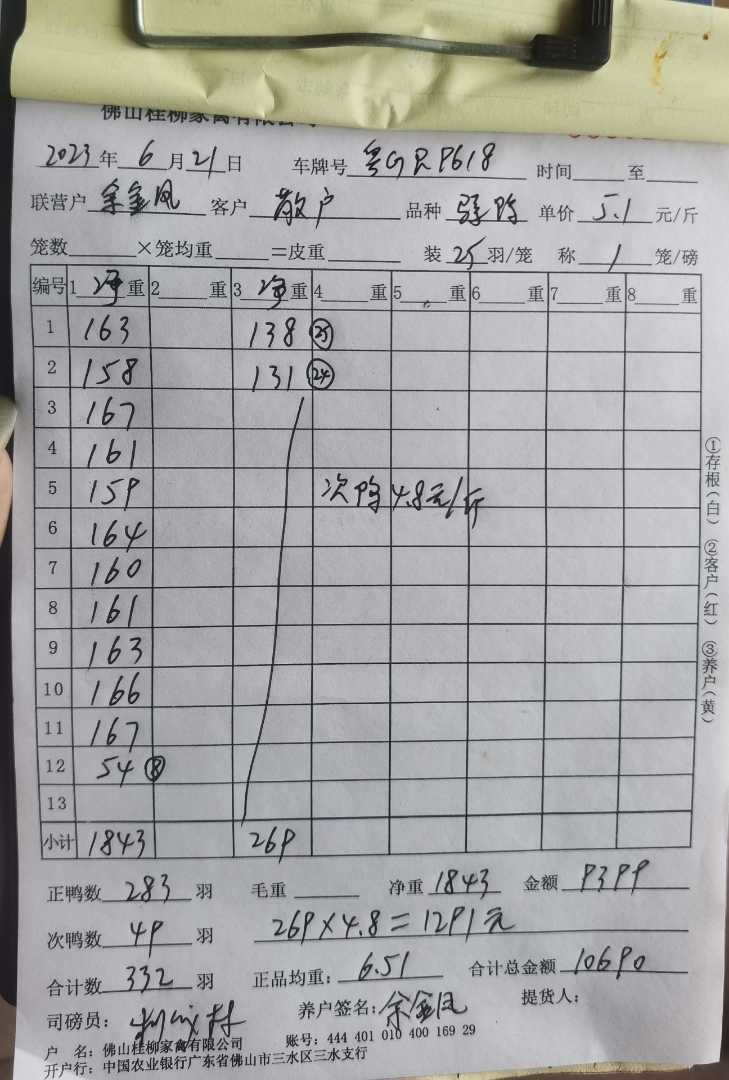 佛山桂柳家禽有限公司
2023年 6 月 21 日 车牌号 粤GR9618 时间 至
联营户 余金凤 客户 散户 品种 单价 5.1 元/斤
笼数 ×笼均重 =皮重 装 25 羽/笼 称 1 笼/磅
编号 1 净 重 2 重 3 净 重 4 重 5 重 6 重 7 重 8 重
1 163 138 25
2 158 131 24
3 167
4 161
5 159 次鸭 4.8元/斤
6 164
7 160
8 161
9 163
10 166
11 167
12 54 8
13
小计 1843 269
正鸭数 283 羽 毛重 净重 1843 金额 9399
次鸭数 49 羽 269×4.8=1291元
合计数 332 羽 正品均重: 6.51 合计总金额 10690
司磅员: 养户签名: 余金凤 提货人:
户 名: 佛山桂柳家禽有限公司 账号: 444 401 010 400 169 29
开户行: 中国农业银行广东省佛山市三水区三水支行
①存根(白) ②客户(红) ③养户(黄)